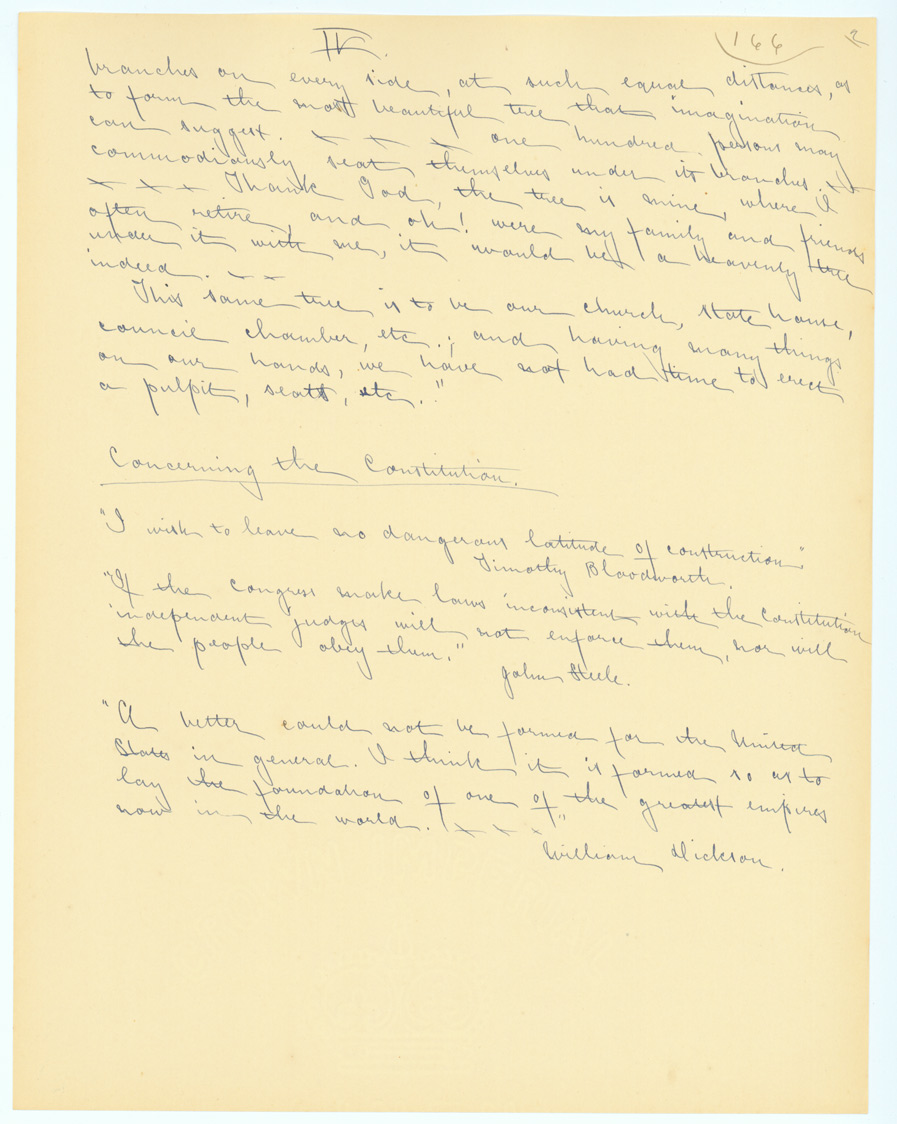 IV. 166 2
branches on every side, at such equal distances, as
to form the most beautiful tree that imagination
can suggest. x x x one hundred persons may
commodiously seat themselves under its branches. x x
x x x Thank God, the tree is mine, where I
often retire, and oh! were my family and friends
under it with me, it would be a heavenly tree
indeed. x x
This same tree is to be our church, state house,
council chamber, etc.; and having many things
on our hands, we have not had time to erect
a pulpit, seats, etc."
Concerning the Constitution.
"I wish to leave no dangerous latitude of construction"
Timothy Bloodworth.
"If the Congress make laws inconsistent with the Constitution
independent judges will not enforce them, nor will
the people obey them."
John Steele.
"A better could not be formed for the United
States in general. I think it is formed so as to
lay the foundation of one of the greatest empires
now in the world. x x x"
William Dickson.